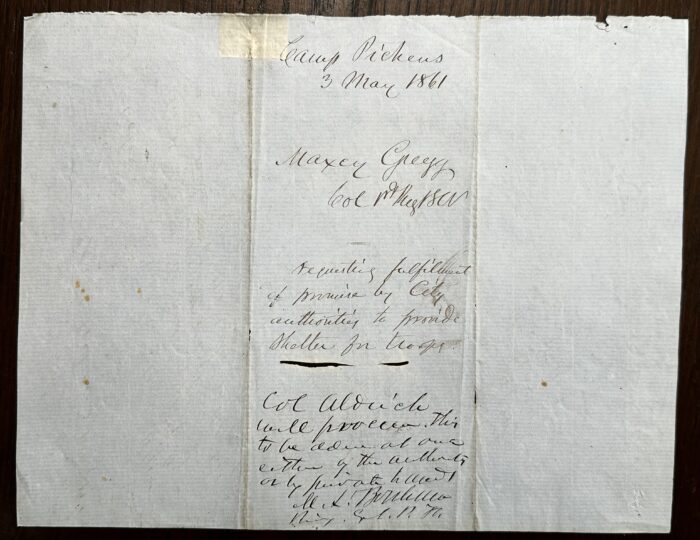 Camp Pickens
3 May 1861
Maxcy Gregg
Col 1st Reg S C V
requesting fulfilment
of promise by City
authorities to provide
Shelter for troops.
Col Aldrich
will procure this
to be done at once
either by the authority
or by private hands
M. L. Bonham